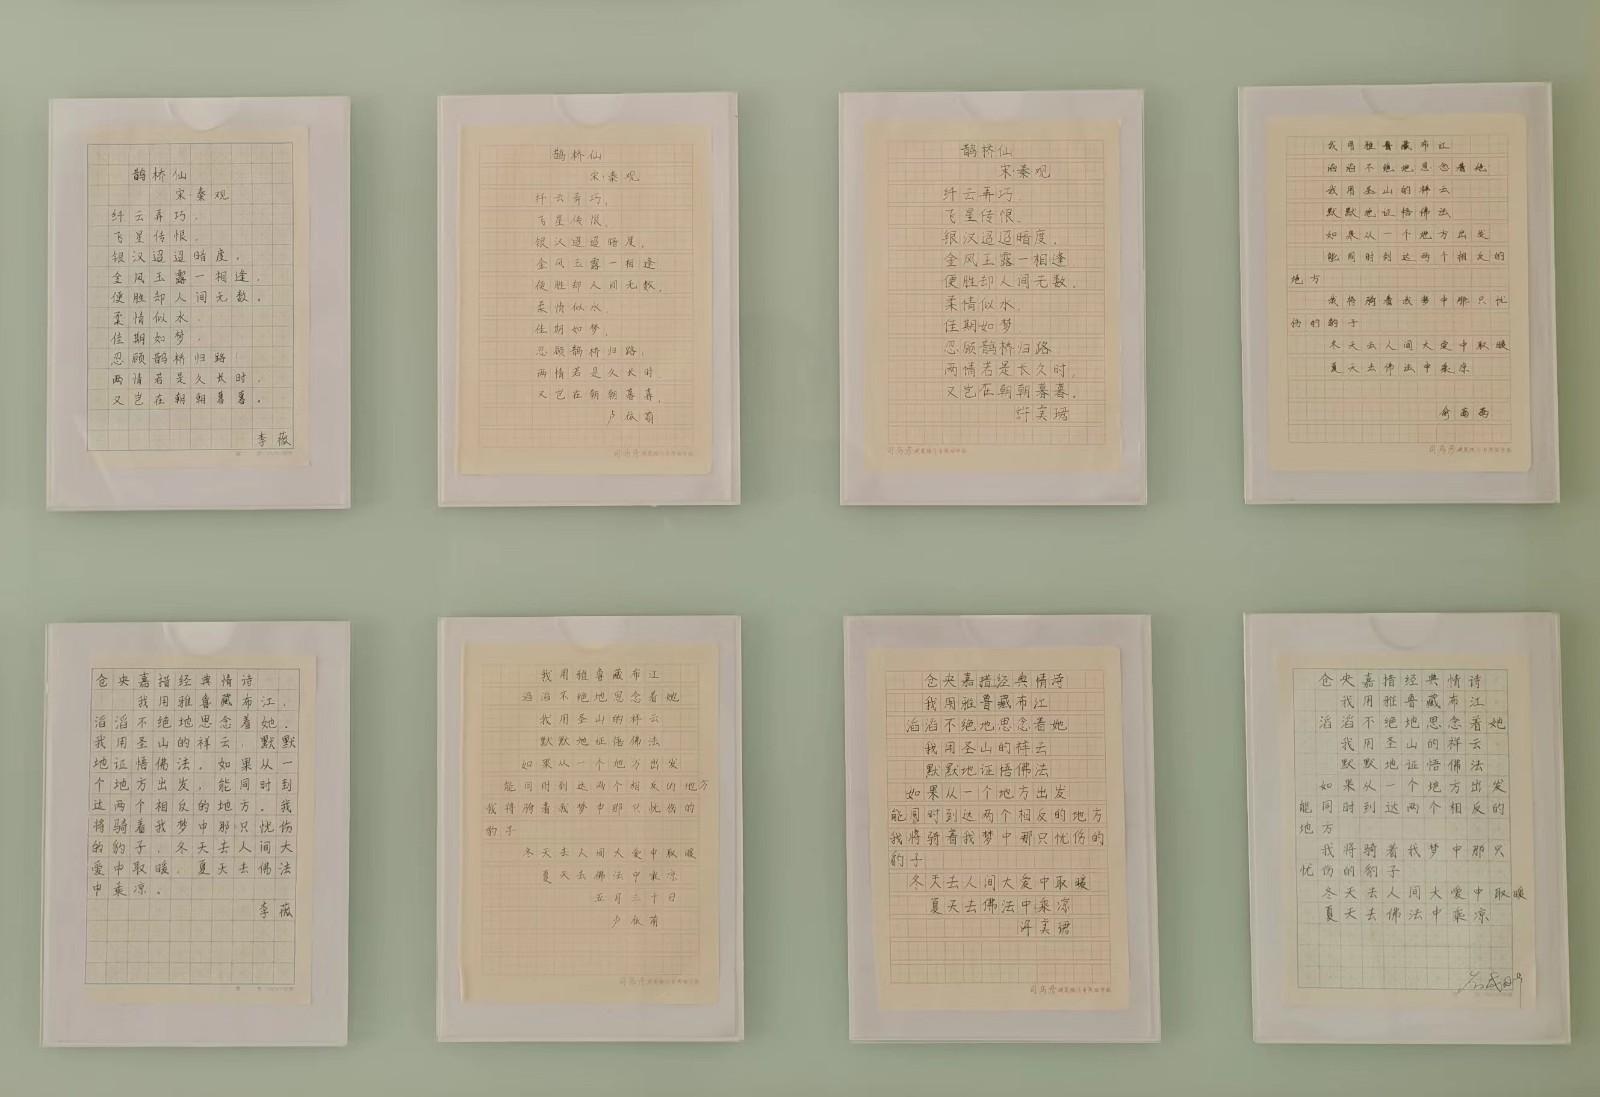 鹊桥仙
宋·秦观
纤云弄巧.
飞星传恨.
银汉迢迢暗度.
金风玉露一相逢.
便胜却人间无数.
柔情似水.
佳期如梦.
忍顾鹊桥归路!
两情若是久长时.
又岂在朝朝暮暮.
李薇
鹊桥仙
宋·秦观
纤云弄巧,
飞星传恨,
银汉迢迢暗度,
金风玉露一相逢
便胜却人间无数,
柔情似水,
佳期如梦,
忍顾鹊桥归路,
两情若是久长时,
又岂在朝朝暮暮,
司马彦
鹊桥仙
宋·秦观
纤云弄巧.
飞星传恨.
银汉迢迢暗度.
金风玉露一相逢
便胜却人间无数.
柔情似水.
佳期如梦
忍顾鹊桥归路
两情若是长久时.
又岂在朝朝暮暮.
许美珺
司马彦
我用雅鲁藏布江
滔滔不绝地思念着她
我用圣山的祥云
默默地证悟佛法
如果从一个地方出发
能同时到达两个相反的
地方
我将骑着我梦中那只忧
伤的豹子
冬天去人间大爱中取暖
夏天去佛法中乘凉
司马彦
仓央嘉措经典情诗
我用雅鲁藏布江,
滔滔不绝地思念着她.
我用圣山的祥云,默默
地证悟佛法.如果从一
个地方出发,能同时到
达两个相反的地方.我
将骑着我梦中那只忧伤
的豹子,冬天去人间大
爱中取暖,夏天去佛法
中乘凉。
李薇
我用雅鲁藏布江
滔滔不绝地思念着她
我用圣山的祥云
默默地证悟佛法
如果从一个地方出发
能同时到达两个相反的地方
我将骑着我梦中那只忧伤的
豹子
冬天去人间大爱中取暖
夏天去佛法中乘凉
五月二十日
司马彦
仓央嘉措经典情诗
我用雅鲁藏布江
滔滔不绝地思念着她
我用圣山的祥云
默默地证悟佛法
如果从一个地方出发
能同时到达两个相反的地方
我将骑着我梦中那只忧伤的
豹子
冬天去人间大爱中取暖
夏天去佛法中乘凉
许美珺
司马彦
仓央嘉措经典情诗
我用雅鲁藏布江
滔滔不绝地思念着她
我用圣山的祥云
默默地证悟佛法
如果从一个地方出发
能同时到达两个相反的
地方
我将骑着我梦中那只
忧伤的豹子
冬天去人间大爱中取暖
夏天去佛法中乘凉